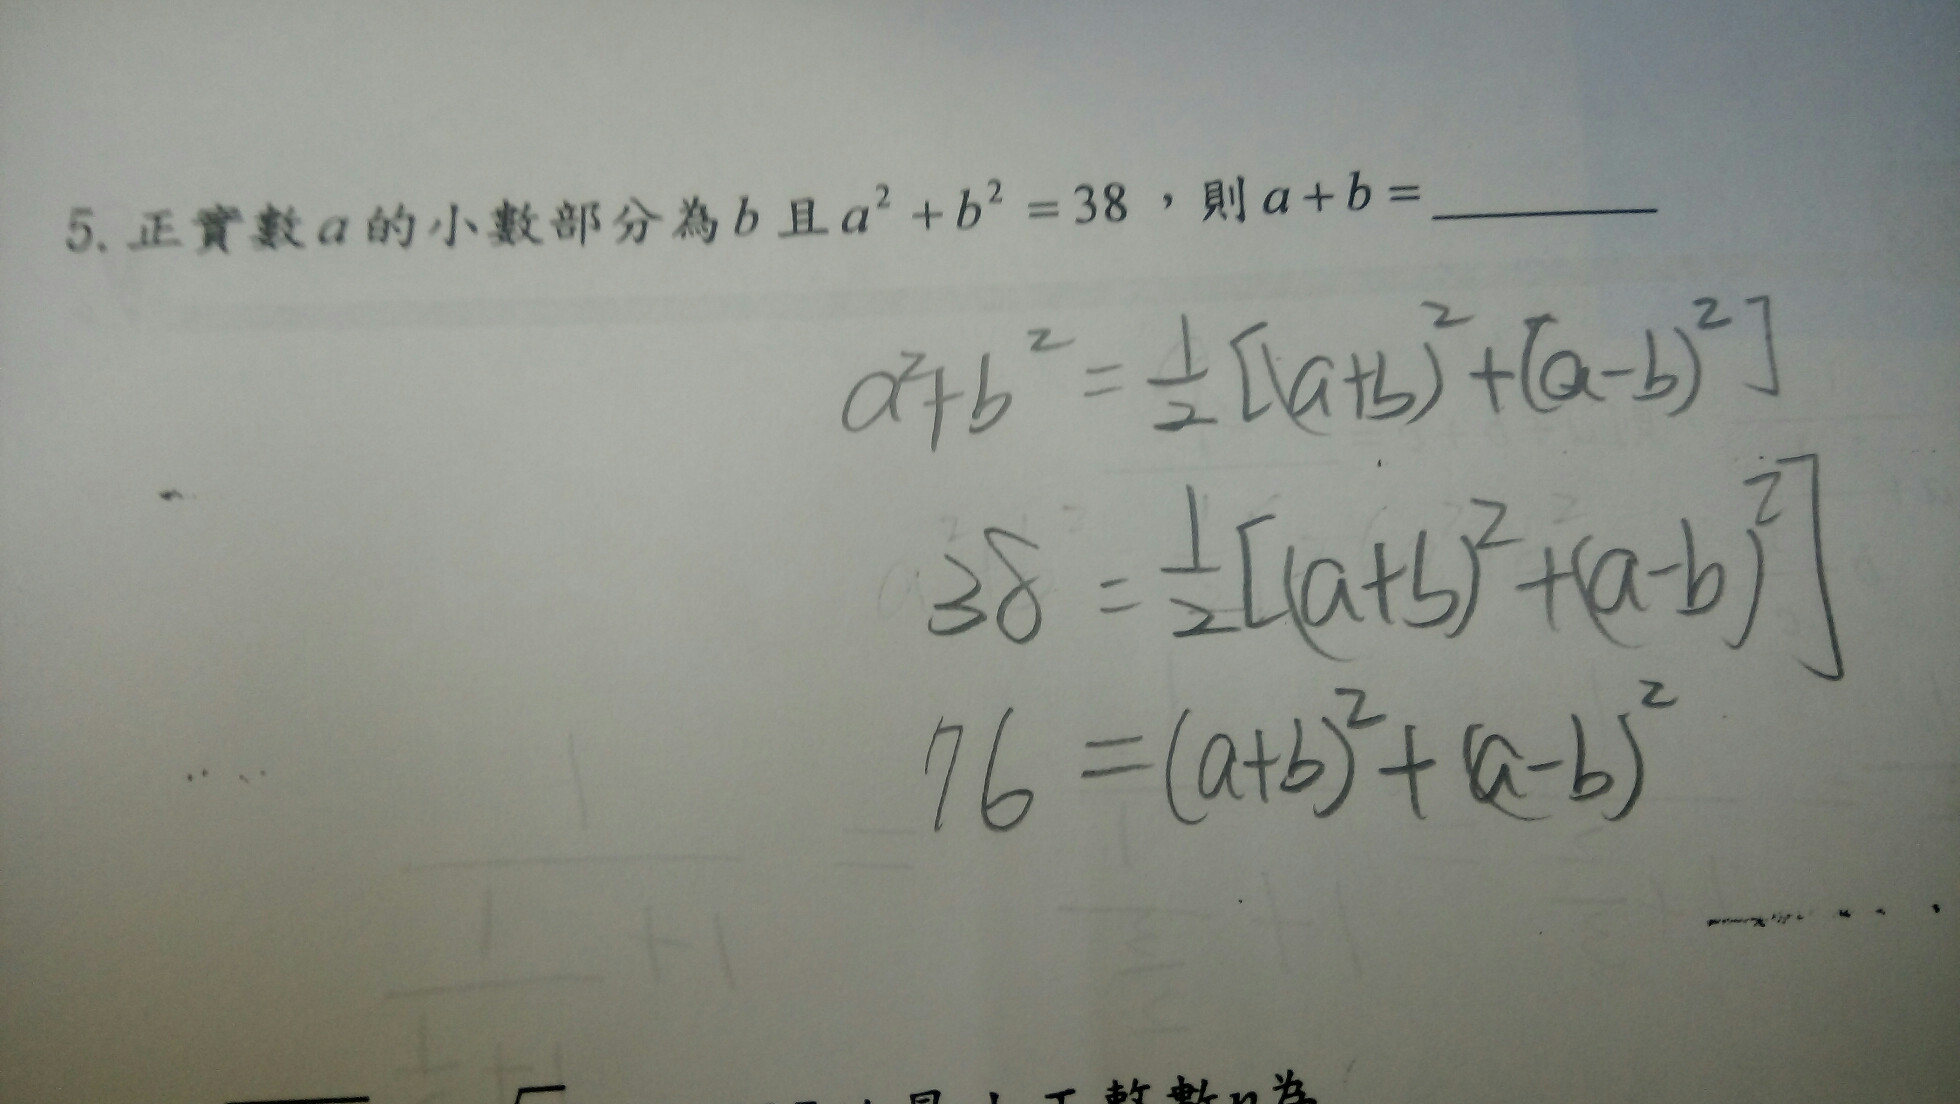 5. 正實數a的小數部分為b且a²+b²=38，則a+b=______
a²+b²=1/2[(a+b)²+(a-b)²]
38=1/2[(a+b)²+(a-b)²]
76=(a+b)²+(a-b)²
正整數n為